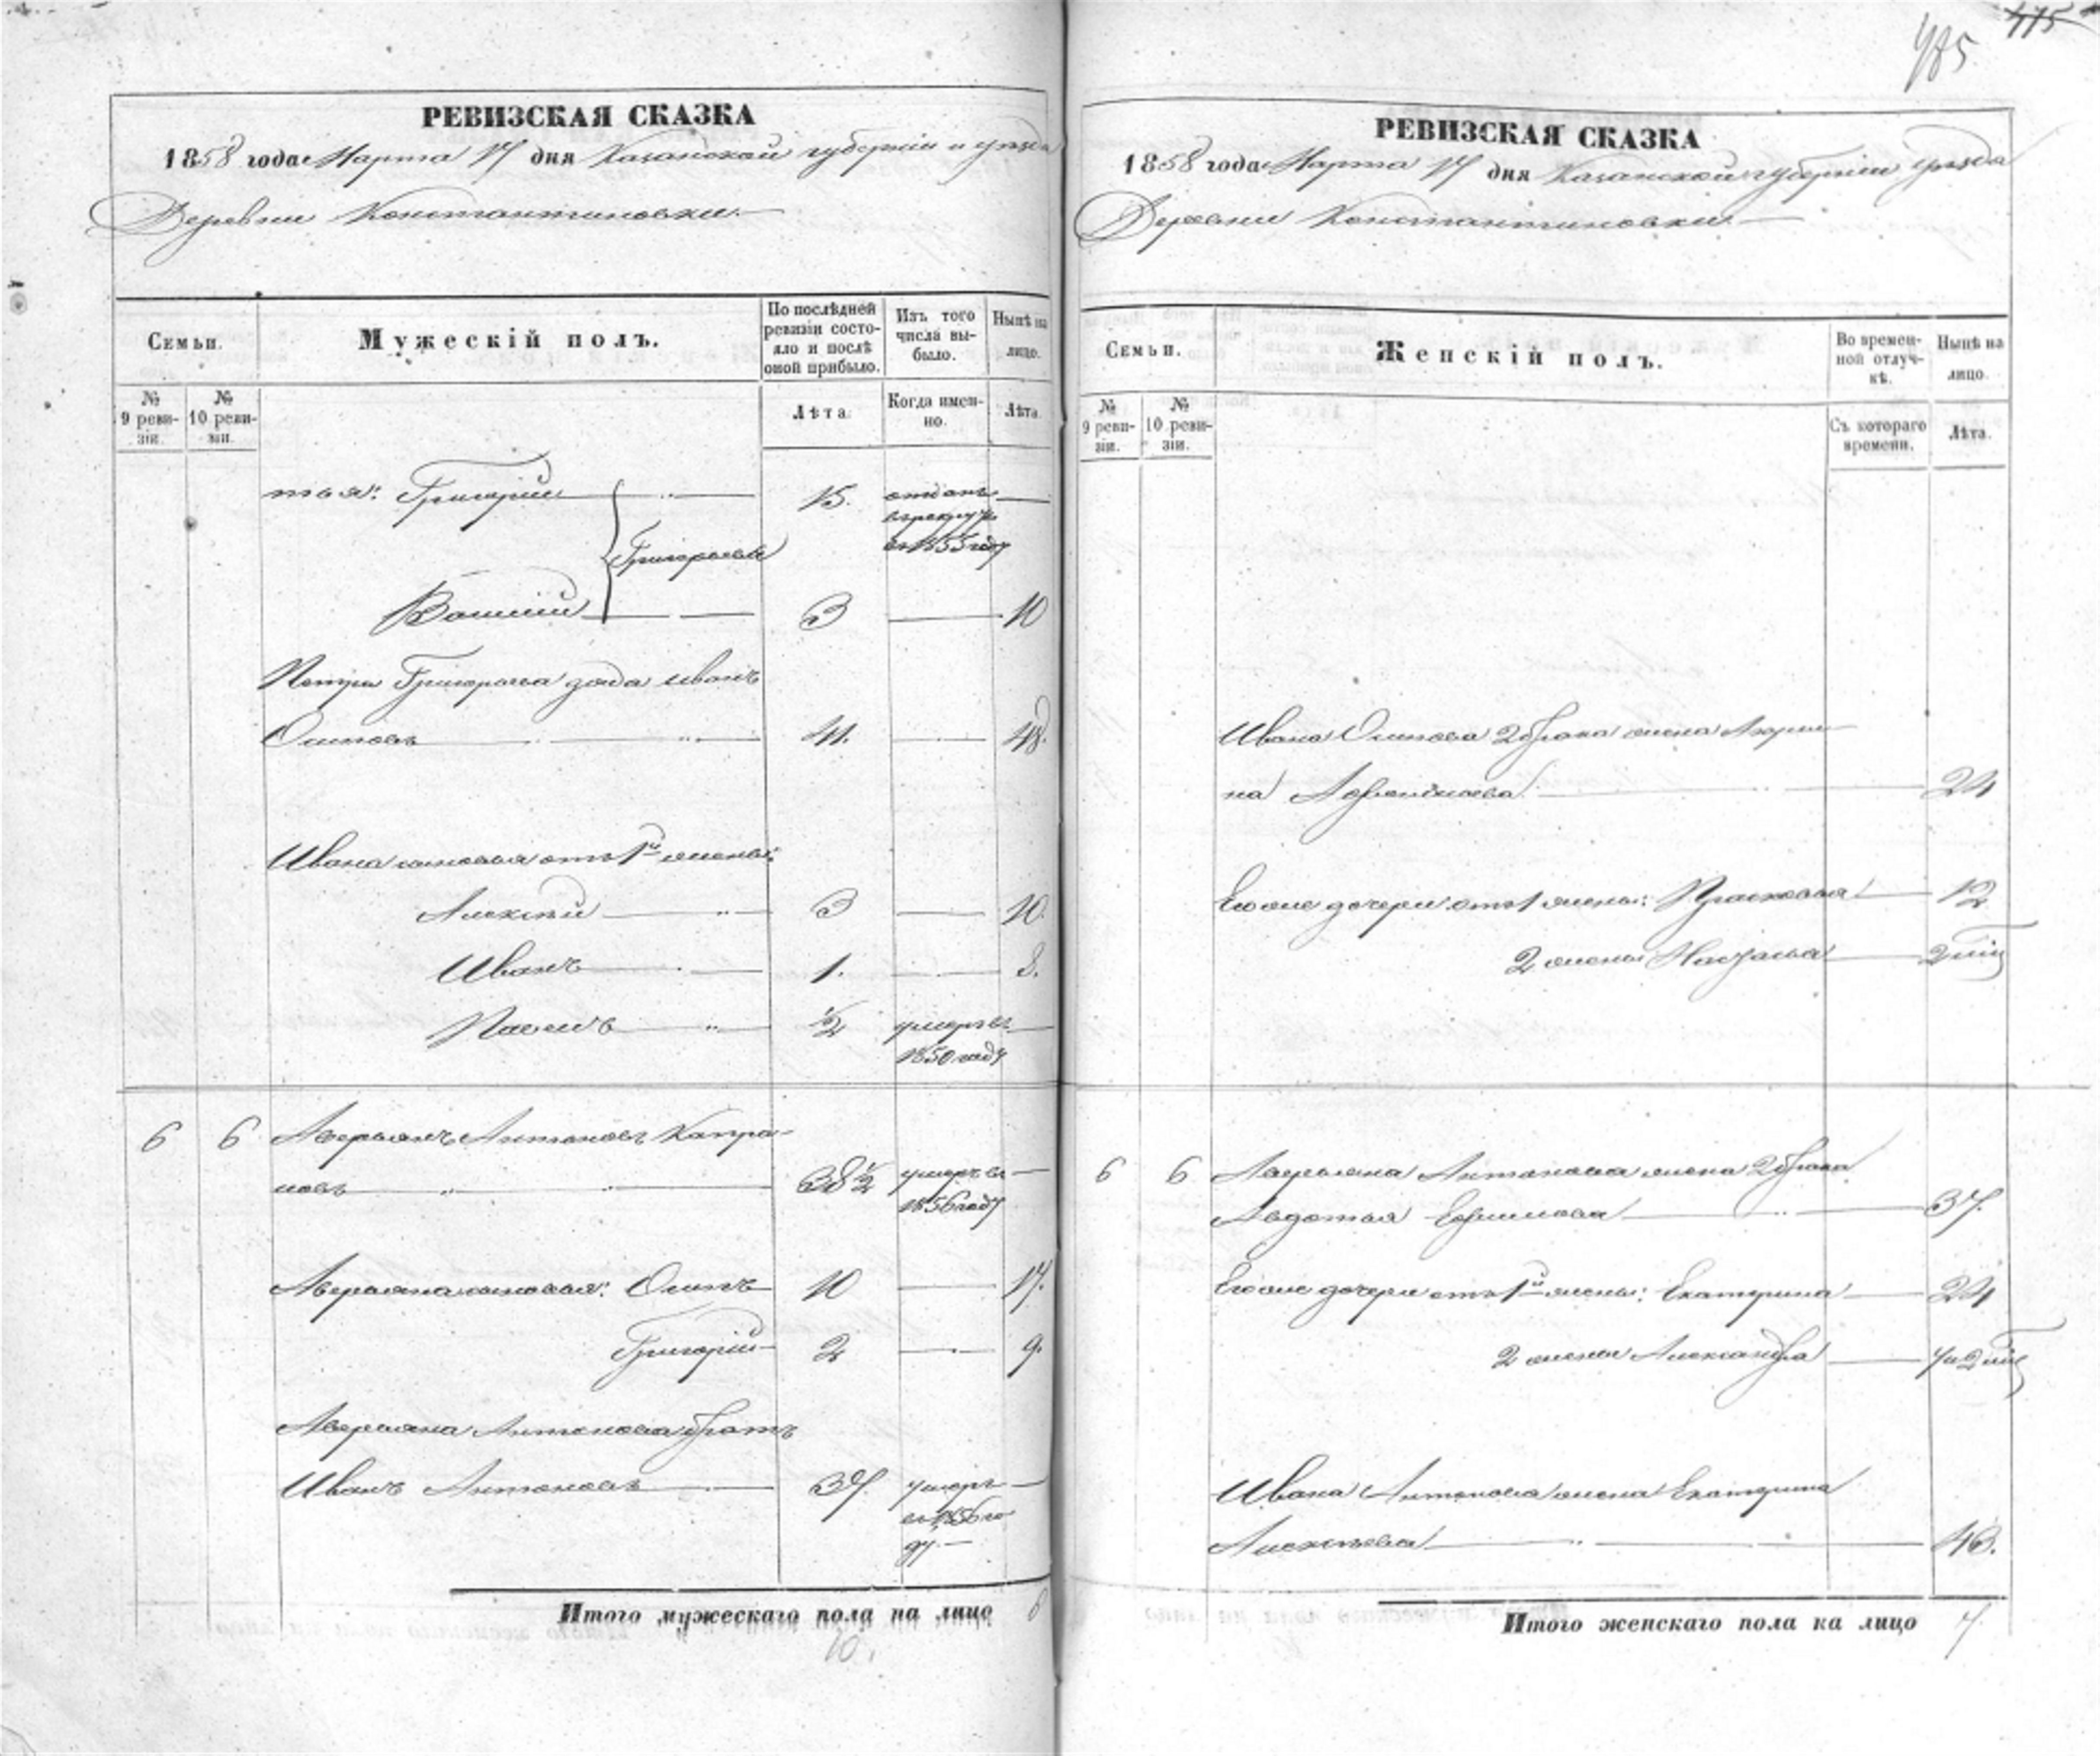 415
485
РЕВИЗСКАЯ СКАЗКА
1858 года Марта 17 дня Казанской губернiи и уезда
Деревни Константиновки.
Семьи.
Мужескiй полъ.
По послѣдней ревизiи состояло и послѣ оной прибыло.
Изъ того числа выбыло.
Нынѣ на лицо.
№ 9 ревизiи.
№ 10 ревизiи.
Лѣта.
Когда именно.
Лѣта.
тья: Григорiй 15. отданъ
в рекруты
в 1855 году
Григорьевы
Васился 3 10
Петра Григорьева дядя Иванъ
Осиповъ 41. 48.
Ивана сыновья отъ 1й жены:
Алексѣй 3 10.
Иванъ 1. 8.
Павелъ ½ умеръ въ
1850 году
6 6 Аверьянъ Антоновъ Капра-
новъ 38½ умеръ въ
1856 году
Аверьяна сыновья: Осипъ 10 17.
Григорiй 2 9.
Аверьяна Антонова братъ
Иванъ Антоновъ 37 умеръ
въ 1856 го
ду.
Итого мужескаго пола на лицо 6
10.
РЕВИЗСКАЯ СКАЗКА
1858 года Марта 17 дня Казанской губернiи уезда
Деревни Константиновки.
Семьи.
Женскiй полъ.
Во временной отлучкѣ.
Нынѣ на лицо.
№ 9 ревизiи.
№ 10 ревизiи.
Съ котораго времени.
Лѣта.
Ивана Осипова 2 брака жена Акули-
на 24
Его же дочери отъ 1 жены: Прасковья 12
2 жены Наталья 2 мѣс
6 6 Аверьяна Антонова жена 2 брака
Авдотья Ефимова 37.
Его же дочери отъ 1й жены: Екатерина 24
2 жены Александра 7 и 2 мѣс
Ивана Антонова жена Екатерина
Алексѣева 43.
Итого женскаго пола на лицо 7